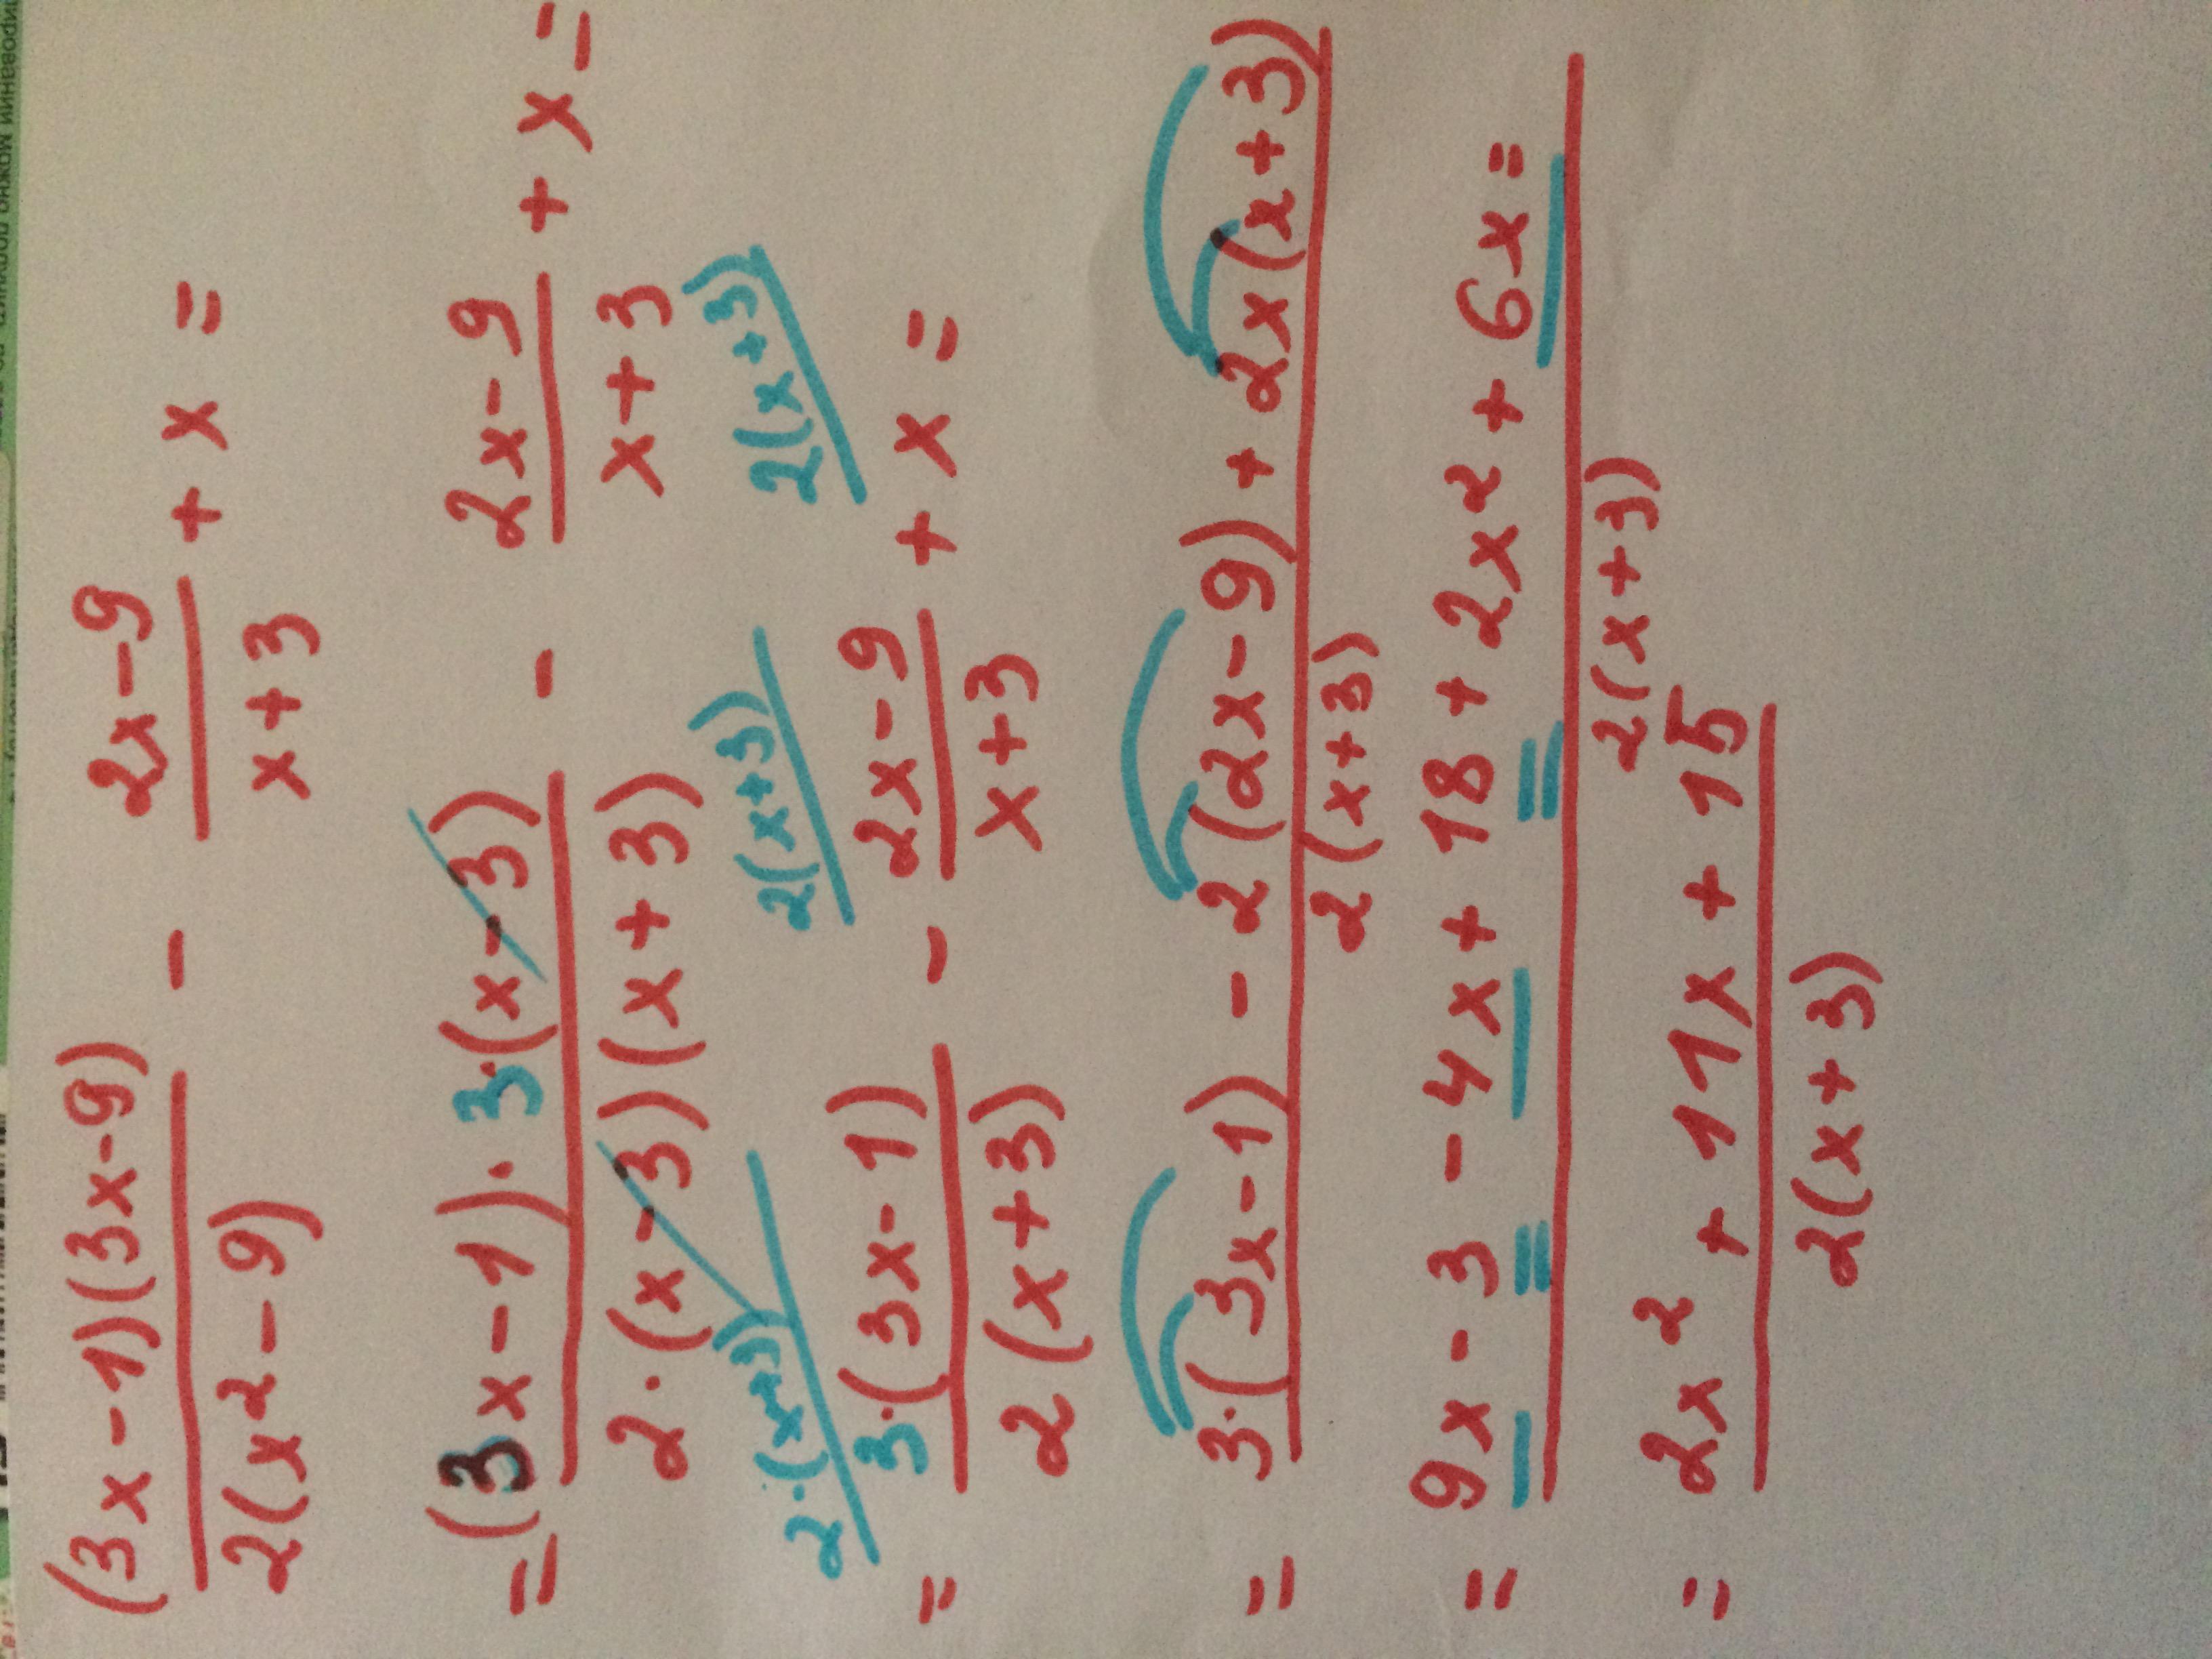 (3x-1)(3x-9) - 2x-9 + x =
2(x²-9) x+3
=(3x-1)·3·(x-3) - 2x-9 + x =
2·(x-3)(x+3) x+3
2·(x+3) 2(x+3) 2(x+3)
= 3·(3x-1) - 2x-9 + x =
2(x+3) x+3
= 3·(3x-1) - 2(2x-9) + 2x(x+3)
2(x+3)
= 9x-3-4x+18+2x²+6x=
2(x+3)
= 2x²+11x+15
2(x+3)